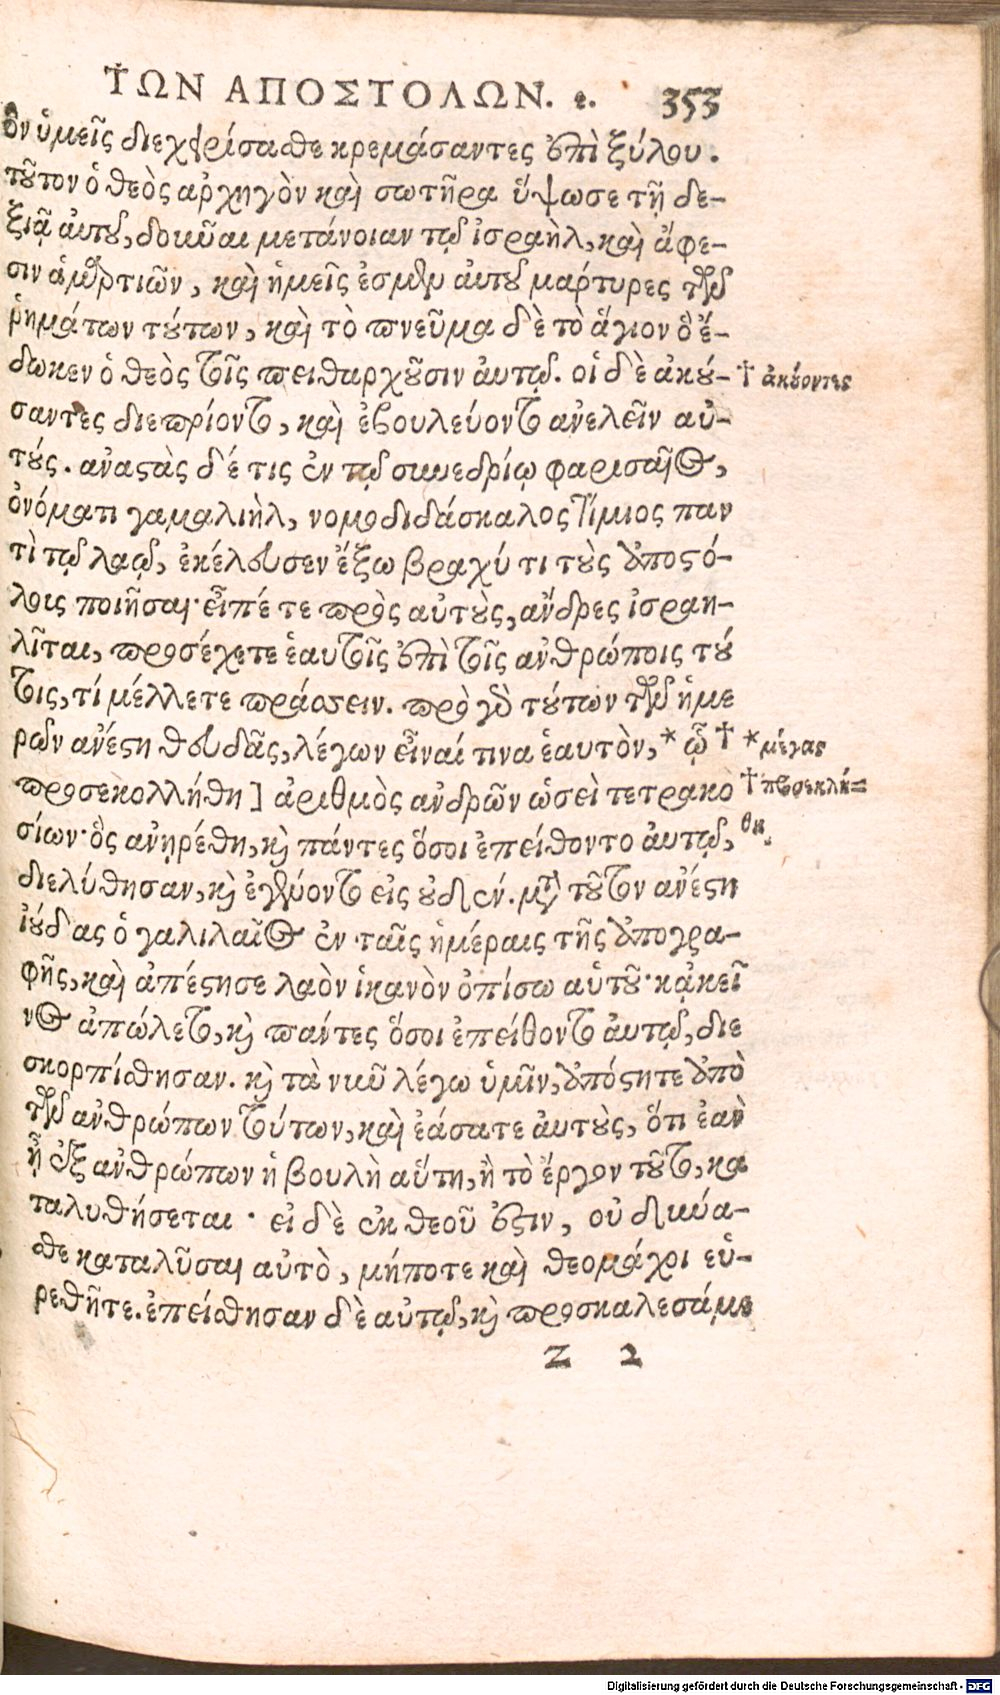 ΤΩΝ ΑΠΟΣΤΟΛΩΝ. ε. 353
ὃν ὑμεῖς διεχειρίσασθε κρεμάσαντες ἐπὶ ξύλου.
τοῦτον ὁ θεὸς ἀρχηγὸν καὶ σωτῆρα ὕψωσε τῇ δε-
ξιᾷ αὐτοῦ, δοῦναι μετάνοιαν τῷ ἰσραὴλ, καὶ ἄφε-
σιν ἁμαρτιῶν, καὶ ἡμεῖς ἐσμὲν αὐτοῦ μάρτυρες τῶν
ῥημάτων τούτων, καὶ τὸ πνεῦμα δὲ τὸ ἅγιον ὃ ἔ-
δωκεν ὁ θεὸς τοῖς πειθαρχοῦσιν αὐτῷ. οἱ δὲ ἀκού- † ἀκούοντες
σαντες διεπρίοντο, καὶ ἐβουλεύοντο ἀνελεῖν αὐ-
τούς. ἀναστὰς δέ τις ἐν τῷ συνεδρίῳ φαρισαῖος,
ὀνόματι γαμαλιὴλ, νομοδιδάσκαλος τίμιος παν
τὶ τῷ λαῷ, ἐκέλευσεν ἔξω βραχύ τι τοὺς ἀποστό-
λοις ποιῆσαι· εἶπέ τε πρὸς αὐτοὺς, ἄνδρες ἰσραη-
λῖται, προσέχετε ἑαυτοῖς ἐπὶ τοῖς ἀνθρώποις τού
τοις, τί μέλλετε πράσσειν. πρὸ γὰρ τούτων τῶν ἡμε
ρῶν ἀνέστη θευδᾶς, λέγων εἶναί τινα ἑαυτὸν,* ᾧ † * μέγαν
προσεκολλήθη] ἀριθμὸς ἀνδρῶν ὡσεὶ τετρακο † προσεκλή=
σίων· ὃς ἀνῃρέθη, καὶ πάντες ὅσοι ἐπείθοντο αὐτῷ, θη.
διελύθησαν, καὶ ἐγένοντο εἰς οὐδέν. μετὰ τοῦτον ἀνέστη
ἰούδας ὁ γαλιλαῖος ἐν ταῖς ἡμέραις τῆς ἀπογρα-
φῆς, καὶ ἀπέστησε λαὸν ἱκανὸν ὀπίσω αὑτοῦ· κᾀκεῖ
νος ἀπώλετο, καὶ πάντες ὅσοι ἐπείθοντο αὐτῷ, διε
σκορπίσθησαν. καὶ τὰ νῦν λέγω ὑμῖν, ἀπόστητε ἀπὸ
τῶν ἀνθρώπων τούτων, καὶ ἐάσατε αὐτοὺς, ὅτι ἐὰν
ᾖ ἐξ ἀνθρώπων ἡ βουλὴ αὕτη, ἢ τὸ ἔργον τοῦτο, κα
ταλυθήσεται· εἰ δὲ ἐκ θεοῦ ἐστιν, οὐ δύνα-
σθε καταλῦσαι αὐτὸ, μήποτε καὶ θεομάχοι εὑ-
ρεθῆτε. ἐπείσθησαν δὲ αὐτῷ, καὶ προσκαλεσάμε
Z 2
Digitalisierung gefördert durch die Deutsche Forschungsgemeinschaft - DFG